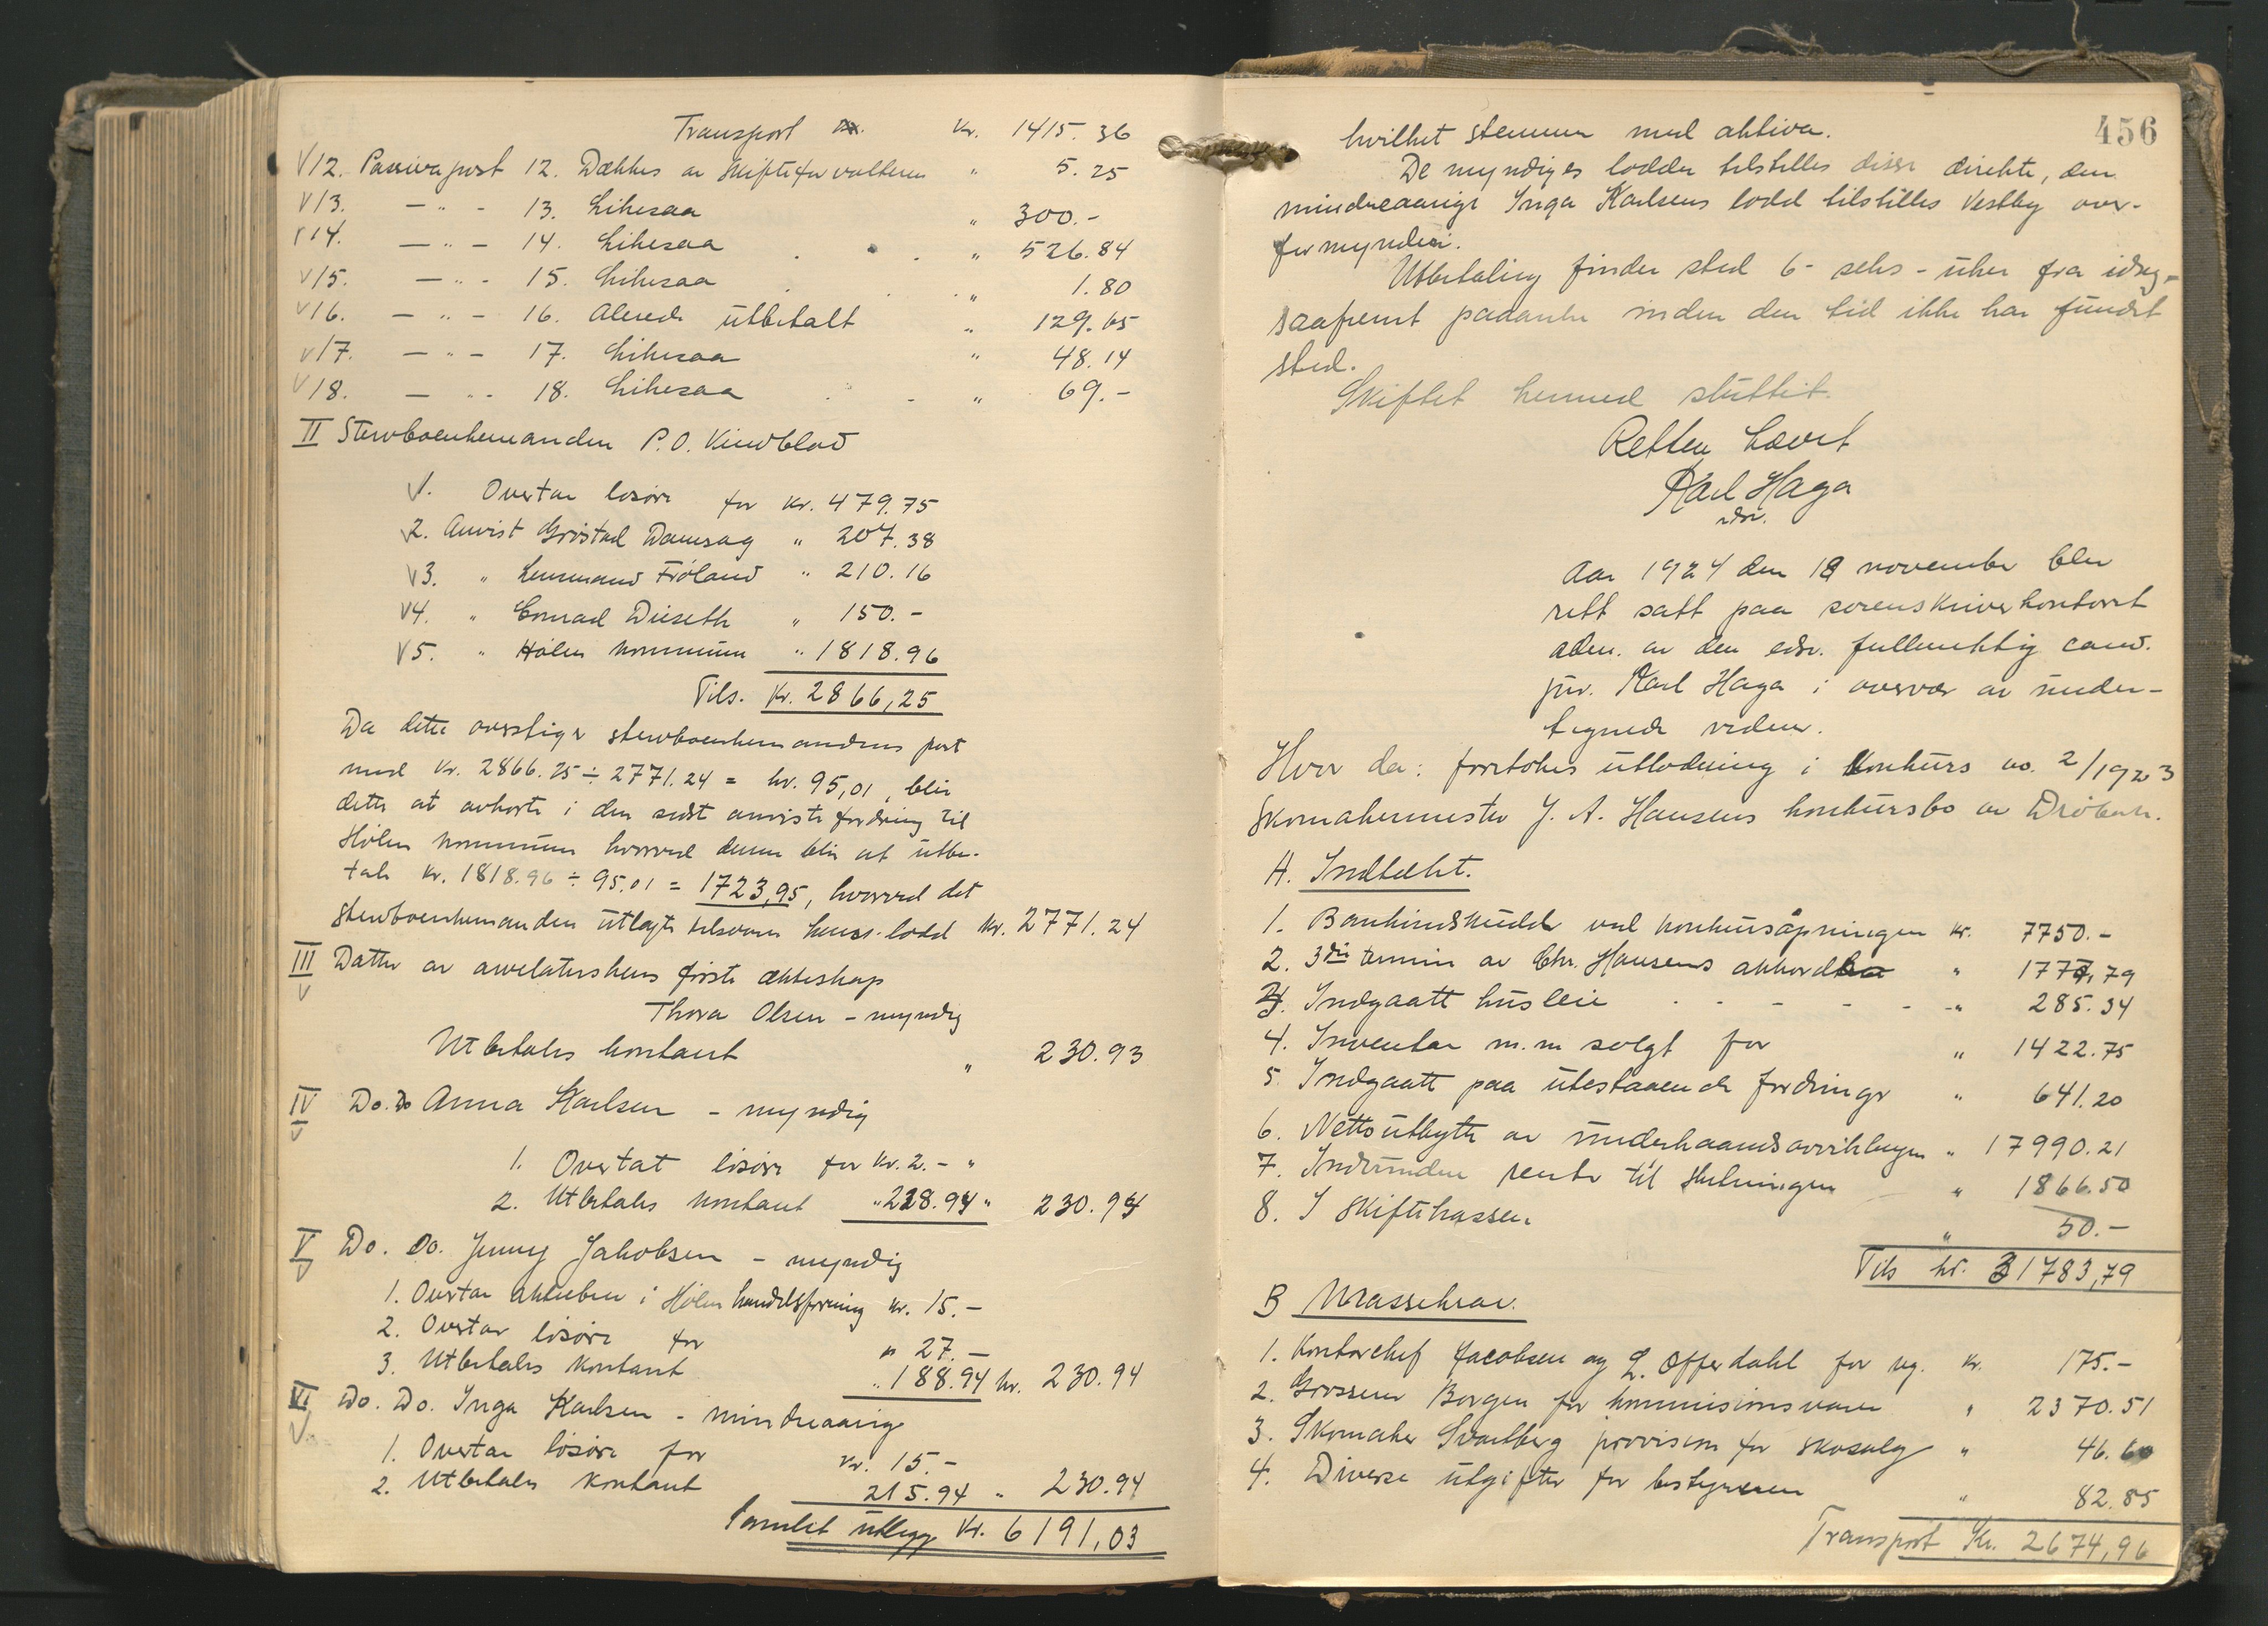 Transport Kr. 1415.36
V12. Passiva post 12. Dækkes av skifteforvalteren " 5.25
V13. — " - 13. Likesaa " 300.-
V14. — " - 14. Likesaa " 526.84
V15. — " - 15. Likesaa " 1.80
V16. — " - 16. Alerede utbetalt " 129.65
V17. — " - 17. Likesaa " 48.14
V18. — " - 18. Likesaa " 69.-
II Stervboenkemanden P.O. Vindblad
V1. Overtar løsøre for Kr. 479.75
V2. Anvist Grøstad Damsag " 207.38
V3. " Lensmand Frøland " 210.16
V4. " Conrad Dieseth " 150.-
V5. " Hølen kommune " 1818.96
Tils. Kr. 2866,25
Da dette overstiger stervboenkemandens part
med Kr. 2866.25 ÷ 2771.24 = kr. 95,01, blir
dette at avkorte i den sidst anviste fordring til
Hølen kommune hvorved denne blir at utbe-
tale Kr. 1818.96 ÷ 95.01 = 1723,95, hvorved det
stervboenkemanden utlagte tilsvarer hans lodd Kr. 2771.24
III Datter av avelaterskens første ækteskap
V Thora Olsen - myndig
Utbetales kontant " 230.93
IV Do. Do Anna Karlsen - myndig
V
1. Overtat løsøre for Kr. 2.- "
2. Utbetales kontant " 228.94 " 230.94
V Do. Do. Jenny Jakobsen - myndig
V
1. Overtar aktiebrev i Hølen handelsforening Kr. 15.-
2. Overtar løsøre for " 27.-
3. Utbetales kontant " 188.94 kr. 230.94
VI Do. Do. Inga Karlsen - mindreaarig
V
1. Overtar løsøre for Kr. 15.-
2. Utbetales kontant 215.94 " 230.94
Samlet utlegg Kr. 6191,03
456
hvilket stemmer med aktiva.
De myndiges lodder tilstilles disse direkte, den
mindreaarige Inga Karlsens lodd tilstilles Vestby over-
formynderi.
Utbetaling finder sted 6 - seks - uker fra idag,
saafremt paaanke inden den tid ikke har fundet
sted.
Skiftet hermed sluttet.
Retten hævet
Karl Haga
edsv.
Aar 1924 den 18 november blev
rett satt paa sorenskriverkontoret
adm. av den edsv. fullmektig cand.
jur. Karl Haga i overvær av under-
tegnede vidner.
Hvor da: foretokes utlodning i konkurs no. 2/1923
Skomakermester J. A. Hansens konkursbo av Drøbak.
A. Indtekt.
1. Bankindskudd ved konkursåpningen Kr. 7750.-
2. 3die termin av Chr. Hansens akkord " 1777,79
3. Indgaatt husleie " 285.34
4. Inventar m.m solgt for " 1422.75
5. Indgaatt paa utestaaende fordringer " 641.20
6. Netto utbytte av underhaandsavviklingen " 17990.21
7. Indvundne renter til slutningen " 1866.50
8. I skiftekassen " 50.-
Tils kr. 31783,79
B Massekrav.
1. Kontorchef Jacobsen og L. Offerdahl for reg. Kr. 175.-
2. Grosserer Borgen for kommisionsvarer " 2370.51
3. Skomaker Svartberg provision for skosalg " 46.60
4. Diverse utgifter for bestyreren " 82.85
Transport Kr. 2674,96